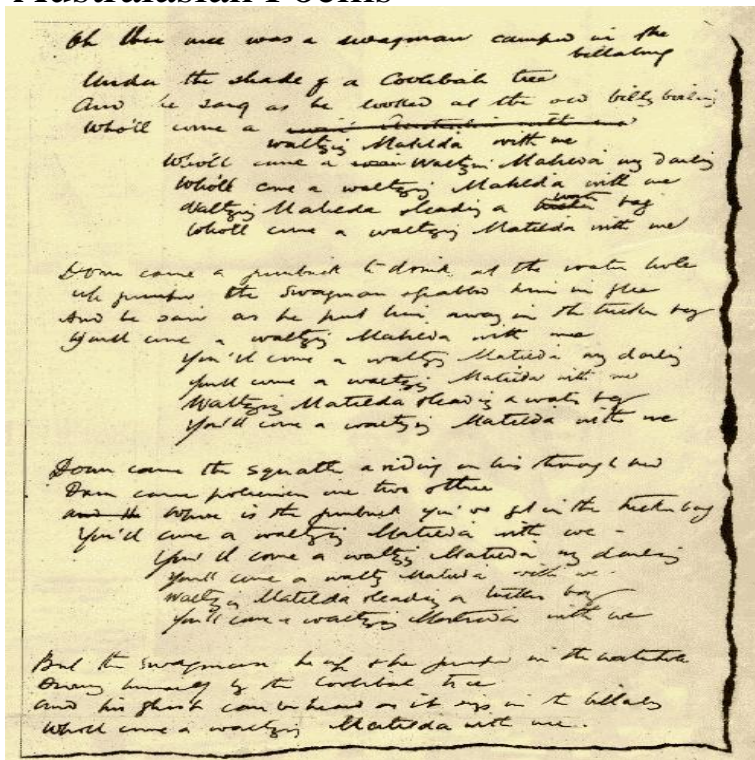 Australasian Poems
Oh there once was a swagman camped in the
billabong
Under the shade of a Coolibah tree
And he sang as he looked at the old billy boiling
Who'll come a
waltzing Matilda with me
Who'll come a waltzing Matilda my darling
Who'll come a waltzing Matilda with me
Waltzing Matilda leading a water bag
Who'll come a waltzing Matilda with me
Down came a jumbuck to drink at the water hole
Up jumped the swagman grabbed him in glee
And he said as he put him away in the tucker bag
You'll come a waltzing Matilda with me
You'll come a waltzing Matilda my darling
You'll come a waltzing Matilda with me
Waltzing Matilda leading a water bag
You'll come a waltzing Matilda with me
Down came the squatter a riding on his thoroughbred
Down came policemen one two three
Where is the jumbuck you've got in the tucker bag
You'll come a waltzing Matilda with me
You'll come a waltzing Matilda my darling
You'll come a waltzing Matilda with me
Waltzing Matilda leading a tucker bag
You'll come a waltzing Matilda with me
But the swagman he up & he jumped in the waterhole
Drowning himself by the Coolibah tree
And his ghost can be heard as it sings in the billabong
Who'll come a waltzing Matilda with me.